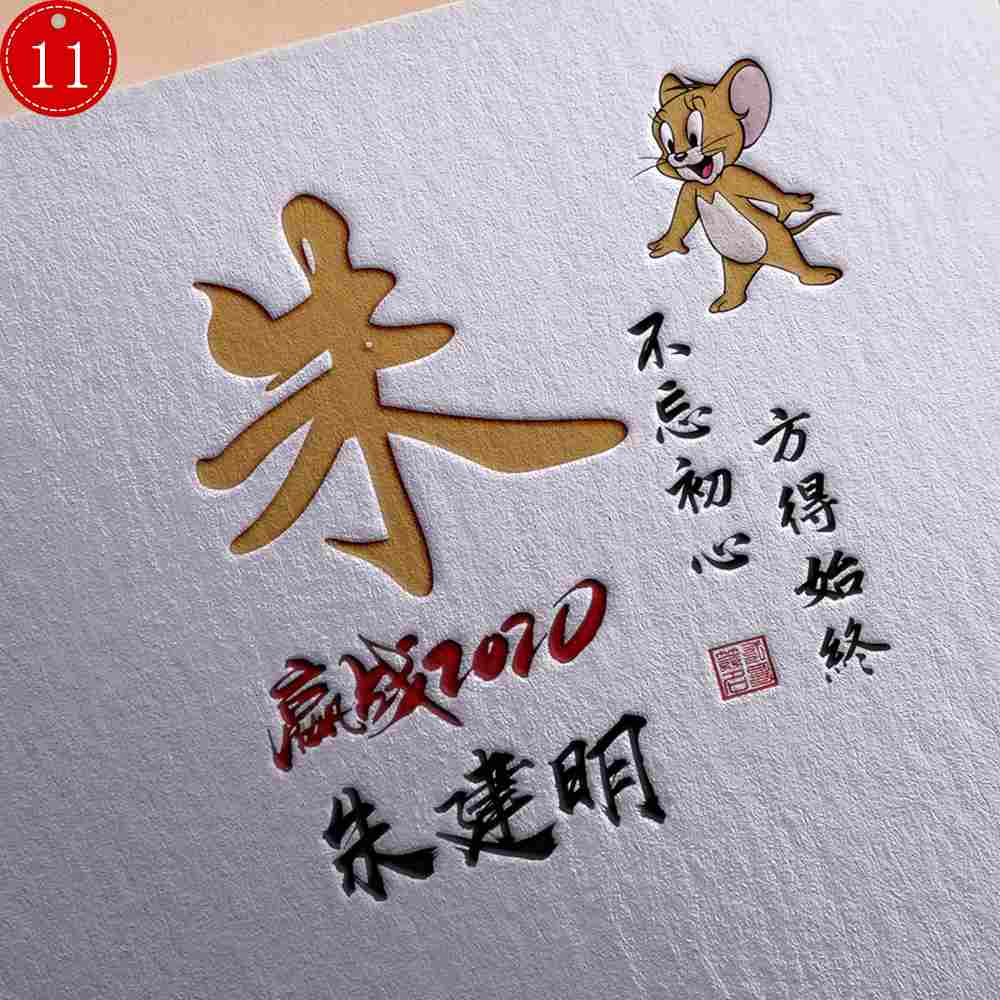 11
朱
不忘初心
方得始终
赢战2020
朱建明